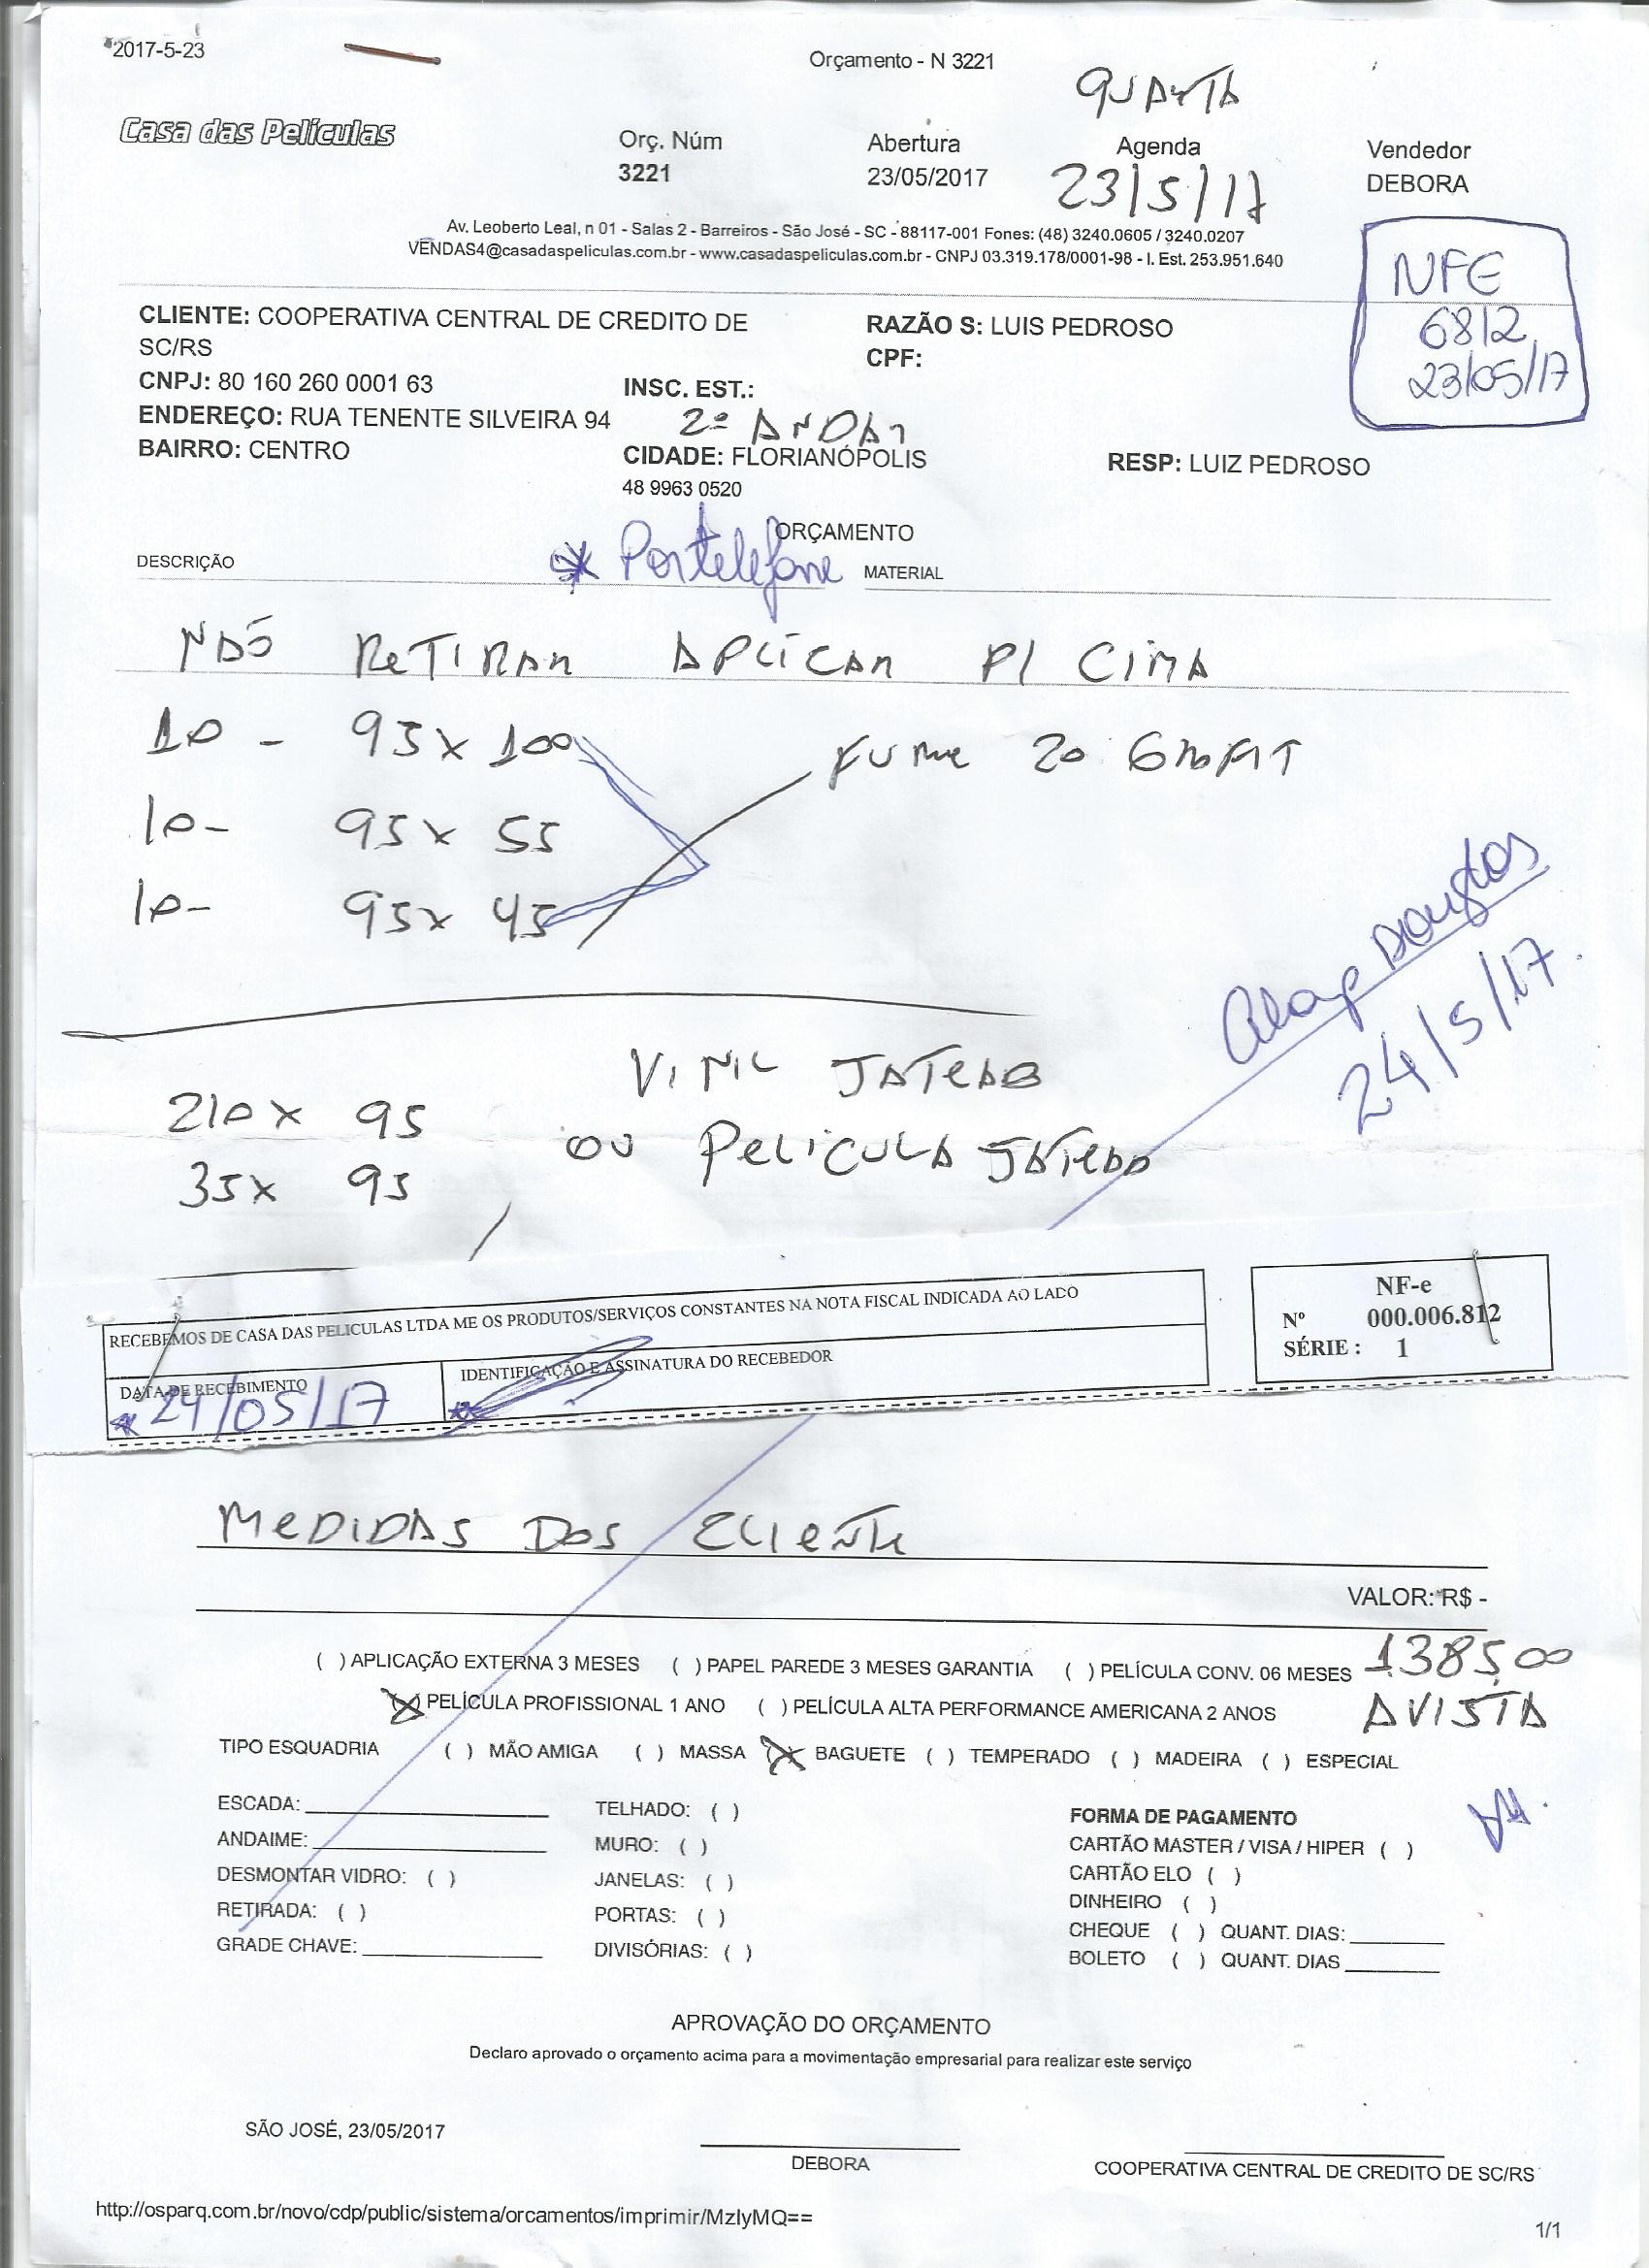 2017-5-23
Orçamento - N 3221
QUARTA
Casa das Películas
Orç. Núm
3221
Abertura
23/05/2017
Agenda
23/5/17
Vendedor
DEBORA
Av. Leoberto Leal, n 01 - Salas 2 - Barreiros - São José - SC - 88117-001 Fones: (48) 3240.0605 / 3240.0207
VENDAS4@casadaspeliculas.com.br - www.casadaspeliculas.com.br - CNPJ 03.319.178/0001-98 - I. Est. 253.951.640
NFE
6812
23/05/17
CLIENTE: COOPERATIVA CENTRAL DE CREDITO DE
SC/RS
CNPJ: 80 160 260 0001 63
ENDEREÇO: RUA TENENTE SILVEIRA 94
BAIRRO: CENTRO
RAZÃO S: LUIS PEDROSO
CPF:
INSC. EST.:
2º ANDAR
CIDADE: FLORIANÓPOLIS
48 9963 0520
RESP: LUIZ PEDROSO
ORÇAMENTO
DESCRIÇÃO
* Por telefone
MATERIAL
NÃO RETIRAR APLICAR P/ CIMA
10 - 95 x 100
FUME 20 GRAFIT
10 - 95 x 55
10 - 95 x 45
VINIL JATEADO
210 x 95
OU PELICULA JATEADO
35 x 95
Douglas
24/5/17.
RECEBEMOS DE CASA DAS PELICULAS LTDA ME OS PRODUTOS/SERVIÇOS CONSTANTES NA NOTA FISCAL INDICADA AO LADO
DATA DE RECEBIMENTO
* 24/05/17
IDENTIFICAÇÃO E ASSINATURA DO RECEBEDOR
NF-e
Nº 000.006.812
SÉRIE : 1
MEDIDAS DOS CLIENTE
VALOR: R$ -
( ) APLICAÇÃO EXTERNA 3 MESES ( ) PAPEL PAREDE 3 MESES GARANTIA ( ) PELÍCULA CONV. 06 MESES
1385,00
(X) PELÍCULA PROFISSIONAL 1 ANO ( ) PELÍCULA ALTA PERFORMANCE AMERICANA 2 ANOS
AVISTA
TIPO ESQUADRIA ( ) MÃO AMIGA ( ) MASSA (X) BAGUETE ( ) TEMPERADO ( ) MADEIRA ( ) ESPECIAL
ESCADA:
ANDAIME:
DESMONTAR VIDRO: ( )
RETIRADA: ( )
GRADE CHAVE:
TELHADO: ( )
MURO: ( )
JANELAS: ( )
PORTAS: ( )
DIVISÓRIAS: ( )
FORMA DE PAGAMENTO
CARTÃO MASTER / VISA / HIPER ( )
CARTÃO ELO ( )
DINHEIRO ( )
CHEQUE ( ) QUANT. DIAS:
BOLETO ( ) QUANT. DIAS
APROVAÇÃO DO ORÇAMENTO
Declaro aprovado o orçamento acima para a movimentação empresarial para realizar este serviço
SÃO JOSÉ, 23/05/2017
DEBORA
COOPERATIVA CENTRAL DE CREDITO DE SC/RS
http://osparq.com.br/novo/cdp/public/sistema/orcamentos/imprimir/MzIyMQ==
1/1